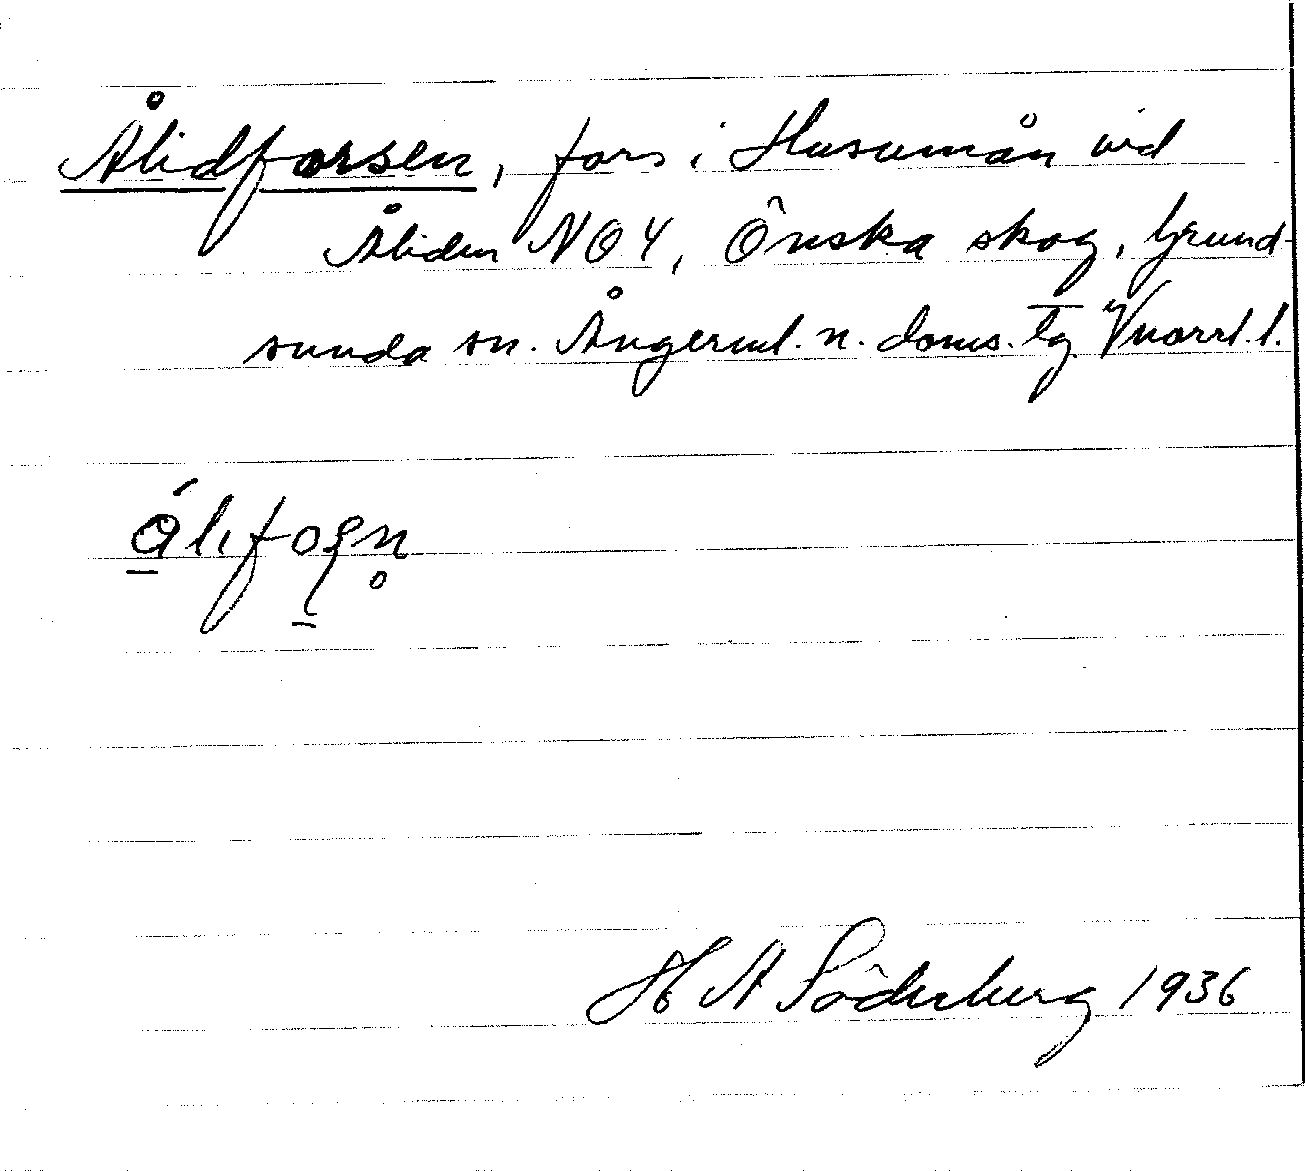 Ålidforsen, fors i Husumån vid
Åliden NO4, Önska skog, Grund-
sunda sn. Ångerml. n. doms. tg Vnorrl. l.
H A Söderberg 1936